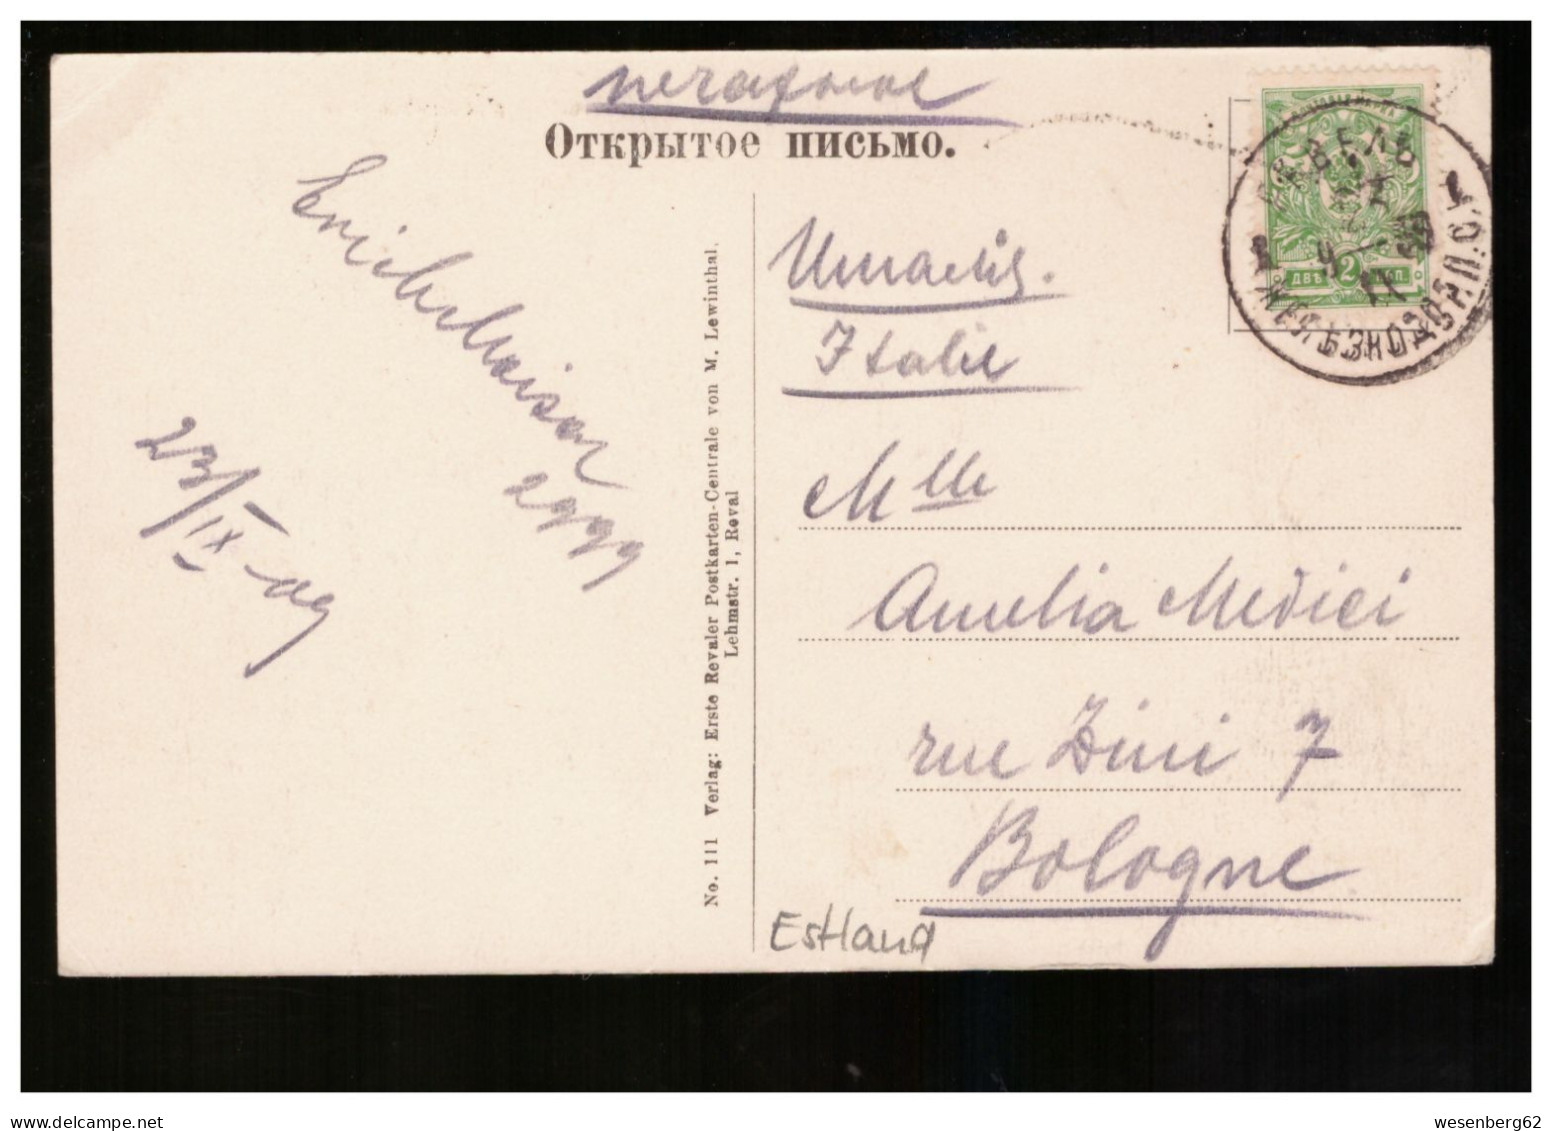 печатное
Открытое письмо.
Италія.
Italie
Mlle
Amelia Medici
rue Zini 7
Bologne
Estland
23/IX-09
2999
No. 111 Verlag: Erste Revaler Postkarten-Centrale von M. Lewinthal.
Lehmstr. 1, Reval
РЕВЕЛЬ
ЖЕЛѢЗНОДОР.П.О.
ДВѢ 2 КОП.
wesenberg62